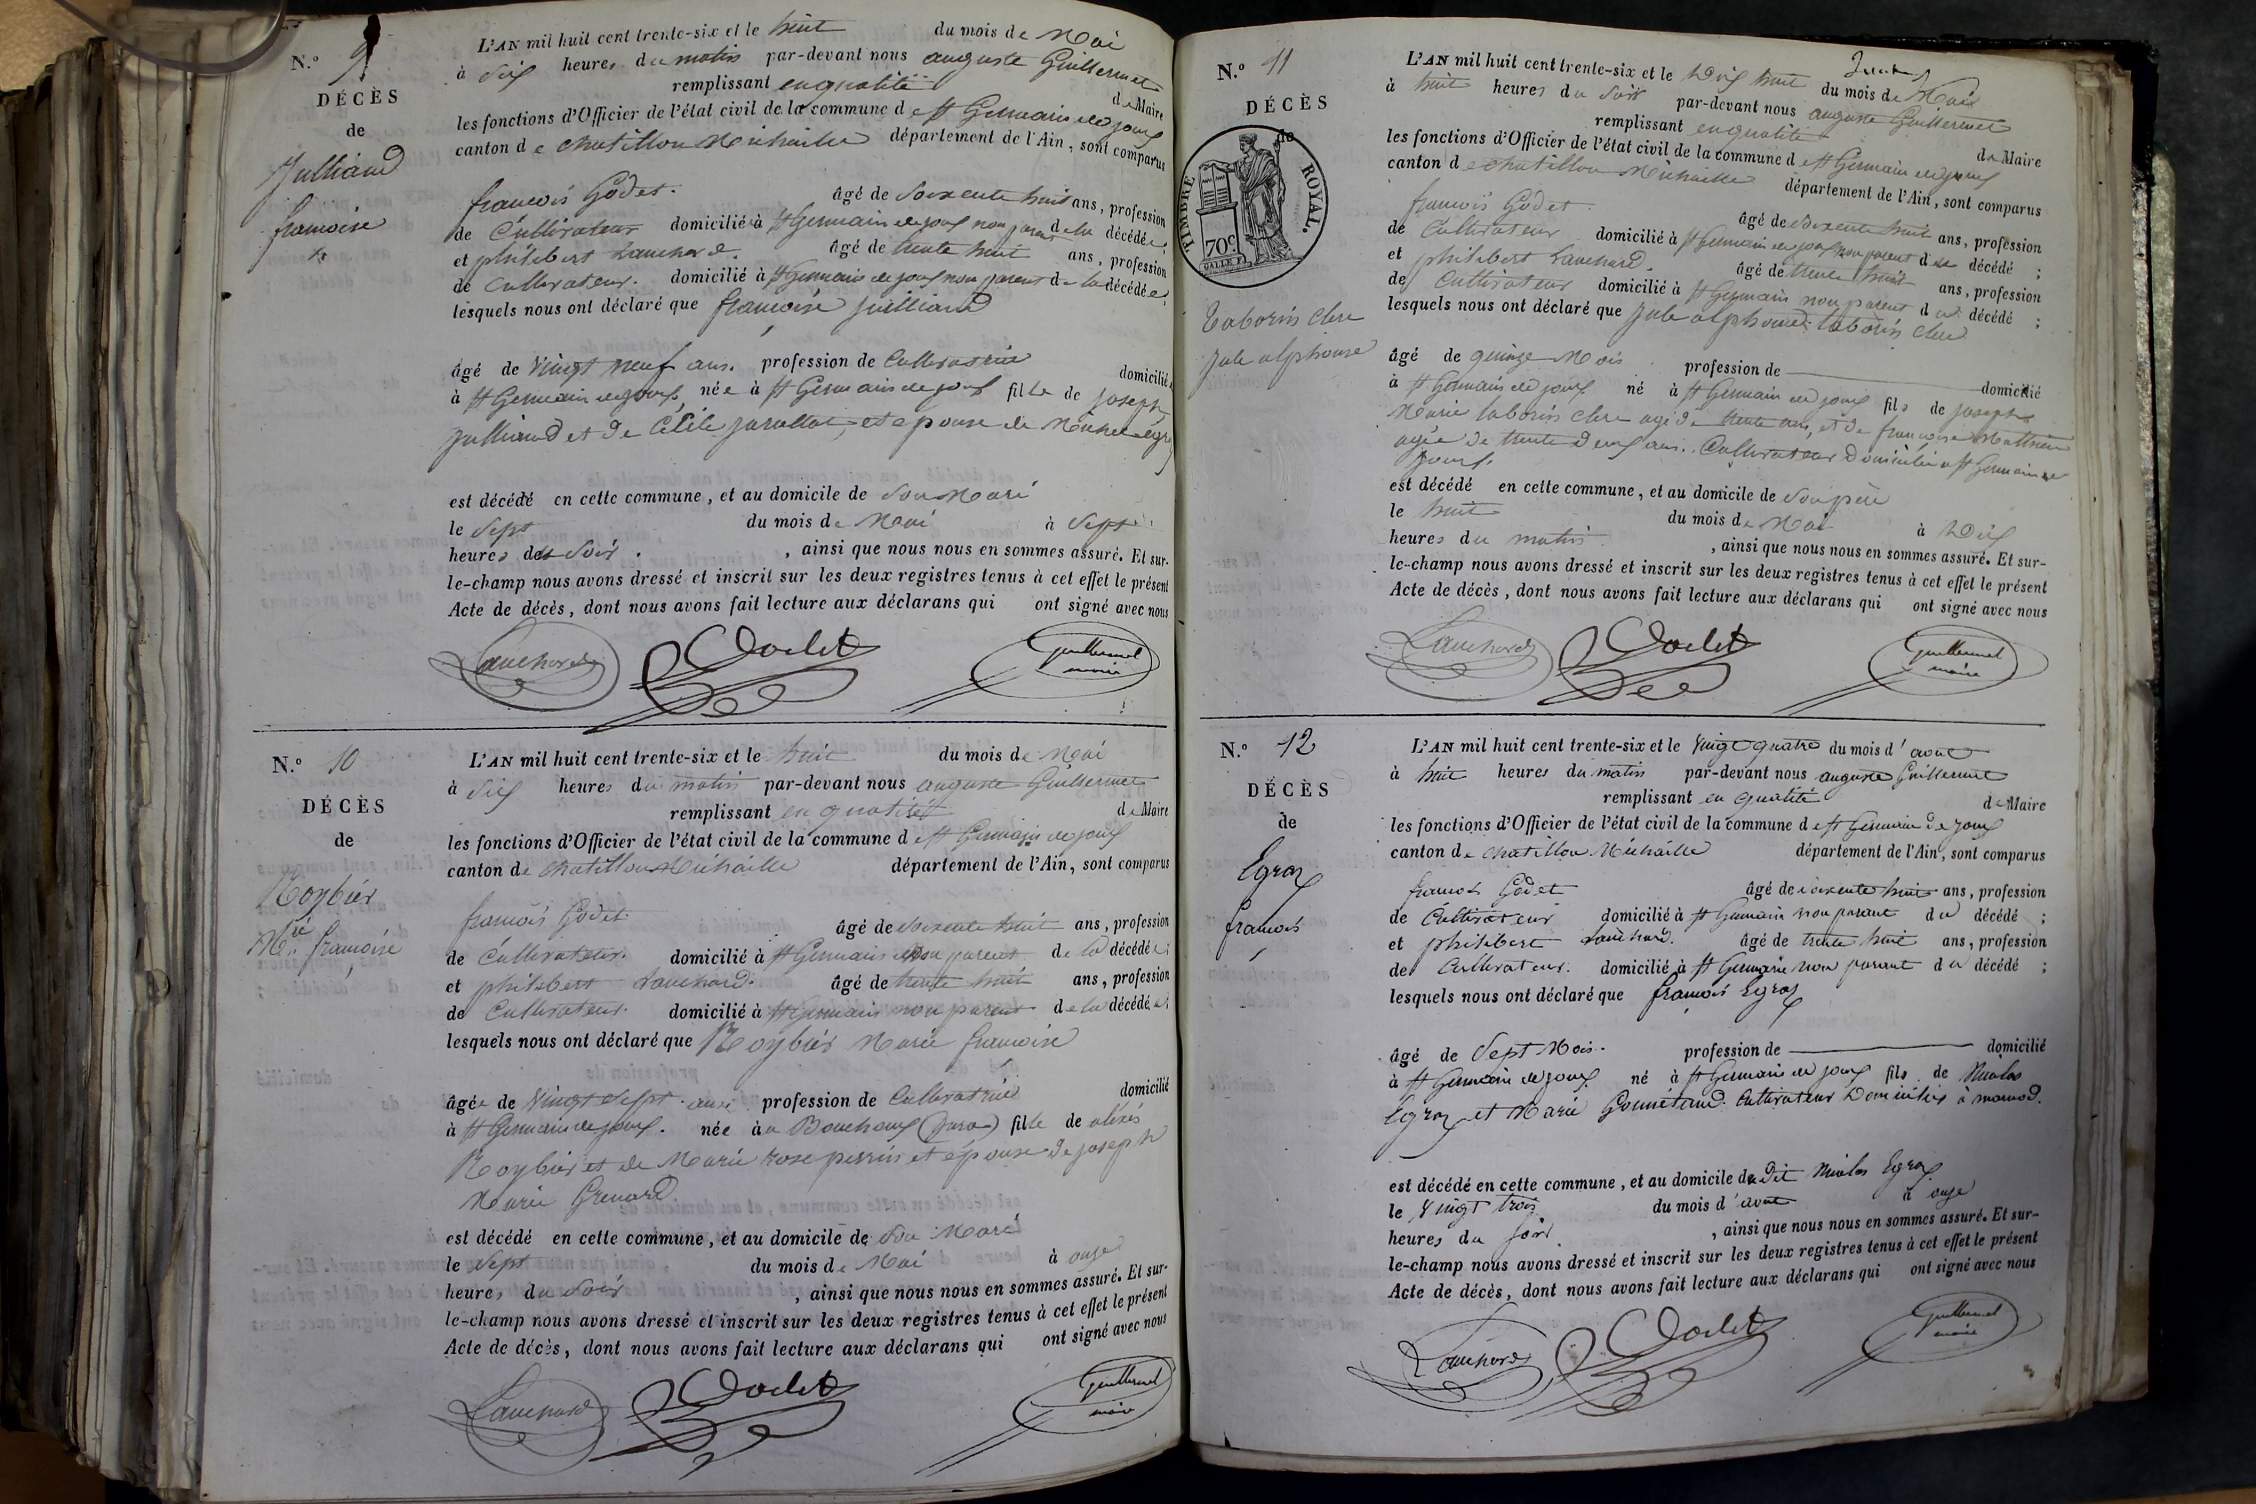 N.º 9
DÉCÈS
de
Julliand
francoise
L'AN mil huit cent trente-six et le huit du mois de Mai
à dix heures du matin par-devant nous auguste Guillermet
remplissant en qualité de Maire
les fonctions d'Officier de l'état civil de la commune de st Germain de joux
canton de chatillon Michaille département de l'Ain, sont comparus
francois Godet. âgé de Soixente huit ans, profession
de Cultivateur domicilié à st Germain de joux non parent de la décédée;
et philibert Lanchard. âgé de trente huit ans, profession
de Cultivateur. domicilié à st Germain de joux non parent de la décédée;
lesquels nous ont déclaré que francoise juilliand
âgé de Vingt neuf ans. profession de Cultivatrice domicilié
à st Germain de joux, née à st Germain de joux fille de joseph
julliand et de Cécile et épouse de
est décédé en cette commune, et au domicile de Son Mari
le Sept du mois de Mai à Sept
heures du Soir. , ainsi que nous nous en sommes assuré. Et sur-
le-champ nous avons dressé et inscrit sur les deux registres tenus à cet effet le présent
Acte de décès, dont nous avons fait lecture aux déclarans qui ont signé avec nous
Lanchard Godet Guillermet
maire
N.º 10
DÉCÈS
de
Roybier
Mie francoise
L'AN mil huit cent trente-six et le huit du mois de Mai
à dix heures du matin par-devant nous auguste Guillermet
remplissant en qualité de Maire
les fonctions d'Officier de l'état civil de la commune de st Germain de joux
canton de chatillon Michaille département de l'Ain, sont comparus
francois Godet. âgé de Soixente huit ans, profession
de Cultivateur. domicilié à st Germain non parent de la décédée;
et philibert Lanchard. âgé de trente huit ans, profession
de Cultivateur. domicilié à st Germain non parent de la décédée;
lesquels nous ont déclaré que Roybier Marie francoise
âgée de Vingt Sept ans profession de Cultivatrice domicilié
à st Germain de joux. née à Bouchoux (jura) fille de
Roybier et de Marie rose perrin et épouse de joseph
Marie Grenard
est décédé en cette commune, et au domicile de Son Mari
le Sept du mois de Mai à onze
heures du Soir , ainsi que nous nous en sommes assuré. Et sur-
le-champ nous avons dressé et inscrit sur les deux registres tenus à cet effet le présent
Acte de décès, dont nous avons fait lecture aux déclarans qui ont signé avec nous
Lanchard Godet Guillermet
maire
N.º 11
DÉCÈS
de
TIMBRE ROYAL.
70c
Taborin clere
Jule alphonse
L'AN mil huit cent trente-six et le Dix huit du mois de
à huit heures du Soir par-devant nous auguste Guillermet
remplissant en qualité de Maire
les fonctions d'Officier de l'état civil de la commune de st Germain de joux
canton de chatillon Michaille département de l'Ain, sont comparus
francois Godet. âgé de Soixente huit ans, profession
de Cultivateur domicilié à st Germain de joux non parent du décédé;
et philibert Lanchard. âgé de trente huit ans, profession
de Cultivateur domicilié à st Germain non parent du décédé;
lesquels nous ont déclaré que Jule alphonse taborin clere
âgé de quinze Mois profession de domicilié
à st Germain de joux né à st Germain de joux fils de joseph
Marie taborin clere agé de trente ans, et de francoise
agée de trente deux ans. Cultivateur Domicilié a st Germain de
joux.
est décédé en cette commune, et au domicile de Son père
le huit du mois de Mai à Dix
heures du matin , ainsi que nous nous en sommes assuré. Et sur-
le-champ nous avons dressé et inscrit sur les deux registres tenus à cet effet le présent
Acte de décès, dont nous avons fait lecture aux déclarans qui ont signé avec nous
Lanchard Godet Guillermet
maire
N.º 12
DÉCÈS
de
Egraz
francois
L'AN mil huit cent trente-six et le Vingt quatre du mois d'aout
à huit heures du matin par-devant nous auguste Guillermet
remplissant en qualité de Maire
les fonctions d'Officier de l'état civil de la commune de st Germain de joux
canton de chatillon Michaille département de l'Ain, sont comparus
francois Godet âgé de Soixente huit ans, profession
de Cultivateur domicilié à st Germain non parent du décédé;
et philibert Lanchard. âgé de trente huit ans, profession
de Cultivateur. domicilié à st Germain non parent du décédé;
lesquels nous ont déclaré que francois Egraz
âgé de Sept Mois. profession de domicilié
à st Germain de joux né à st Germain de joux fils de Nicolas
Egraz et Marie Cultivateur Domiciliés à
est décédé en cette commune, et au domicile du dit Nicolas Egraz
le Vingt trois du mois d'aout à onze
heures du Soir. , ainsi que nous nous en sommes assuré. Et sur-
le-champ nous avons dressé et inscrit sur les deux registres tenus à cet effet le présent
Acte de décès, dont nous avons fait lecture aux déclarans qui ont signé avec nous
Lanchard Godet Guillermet
maire